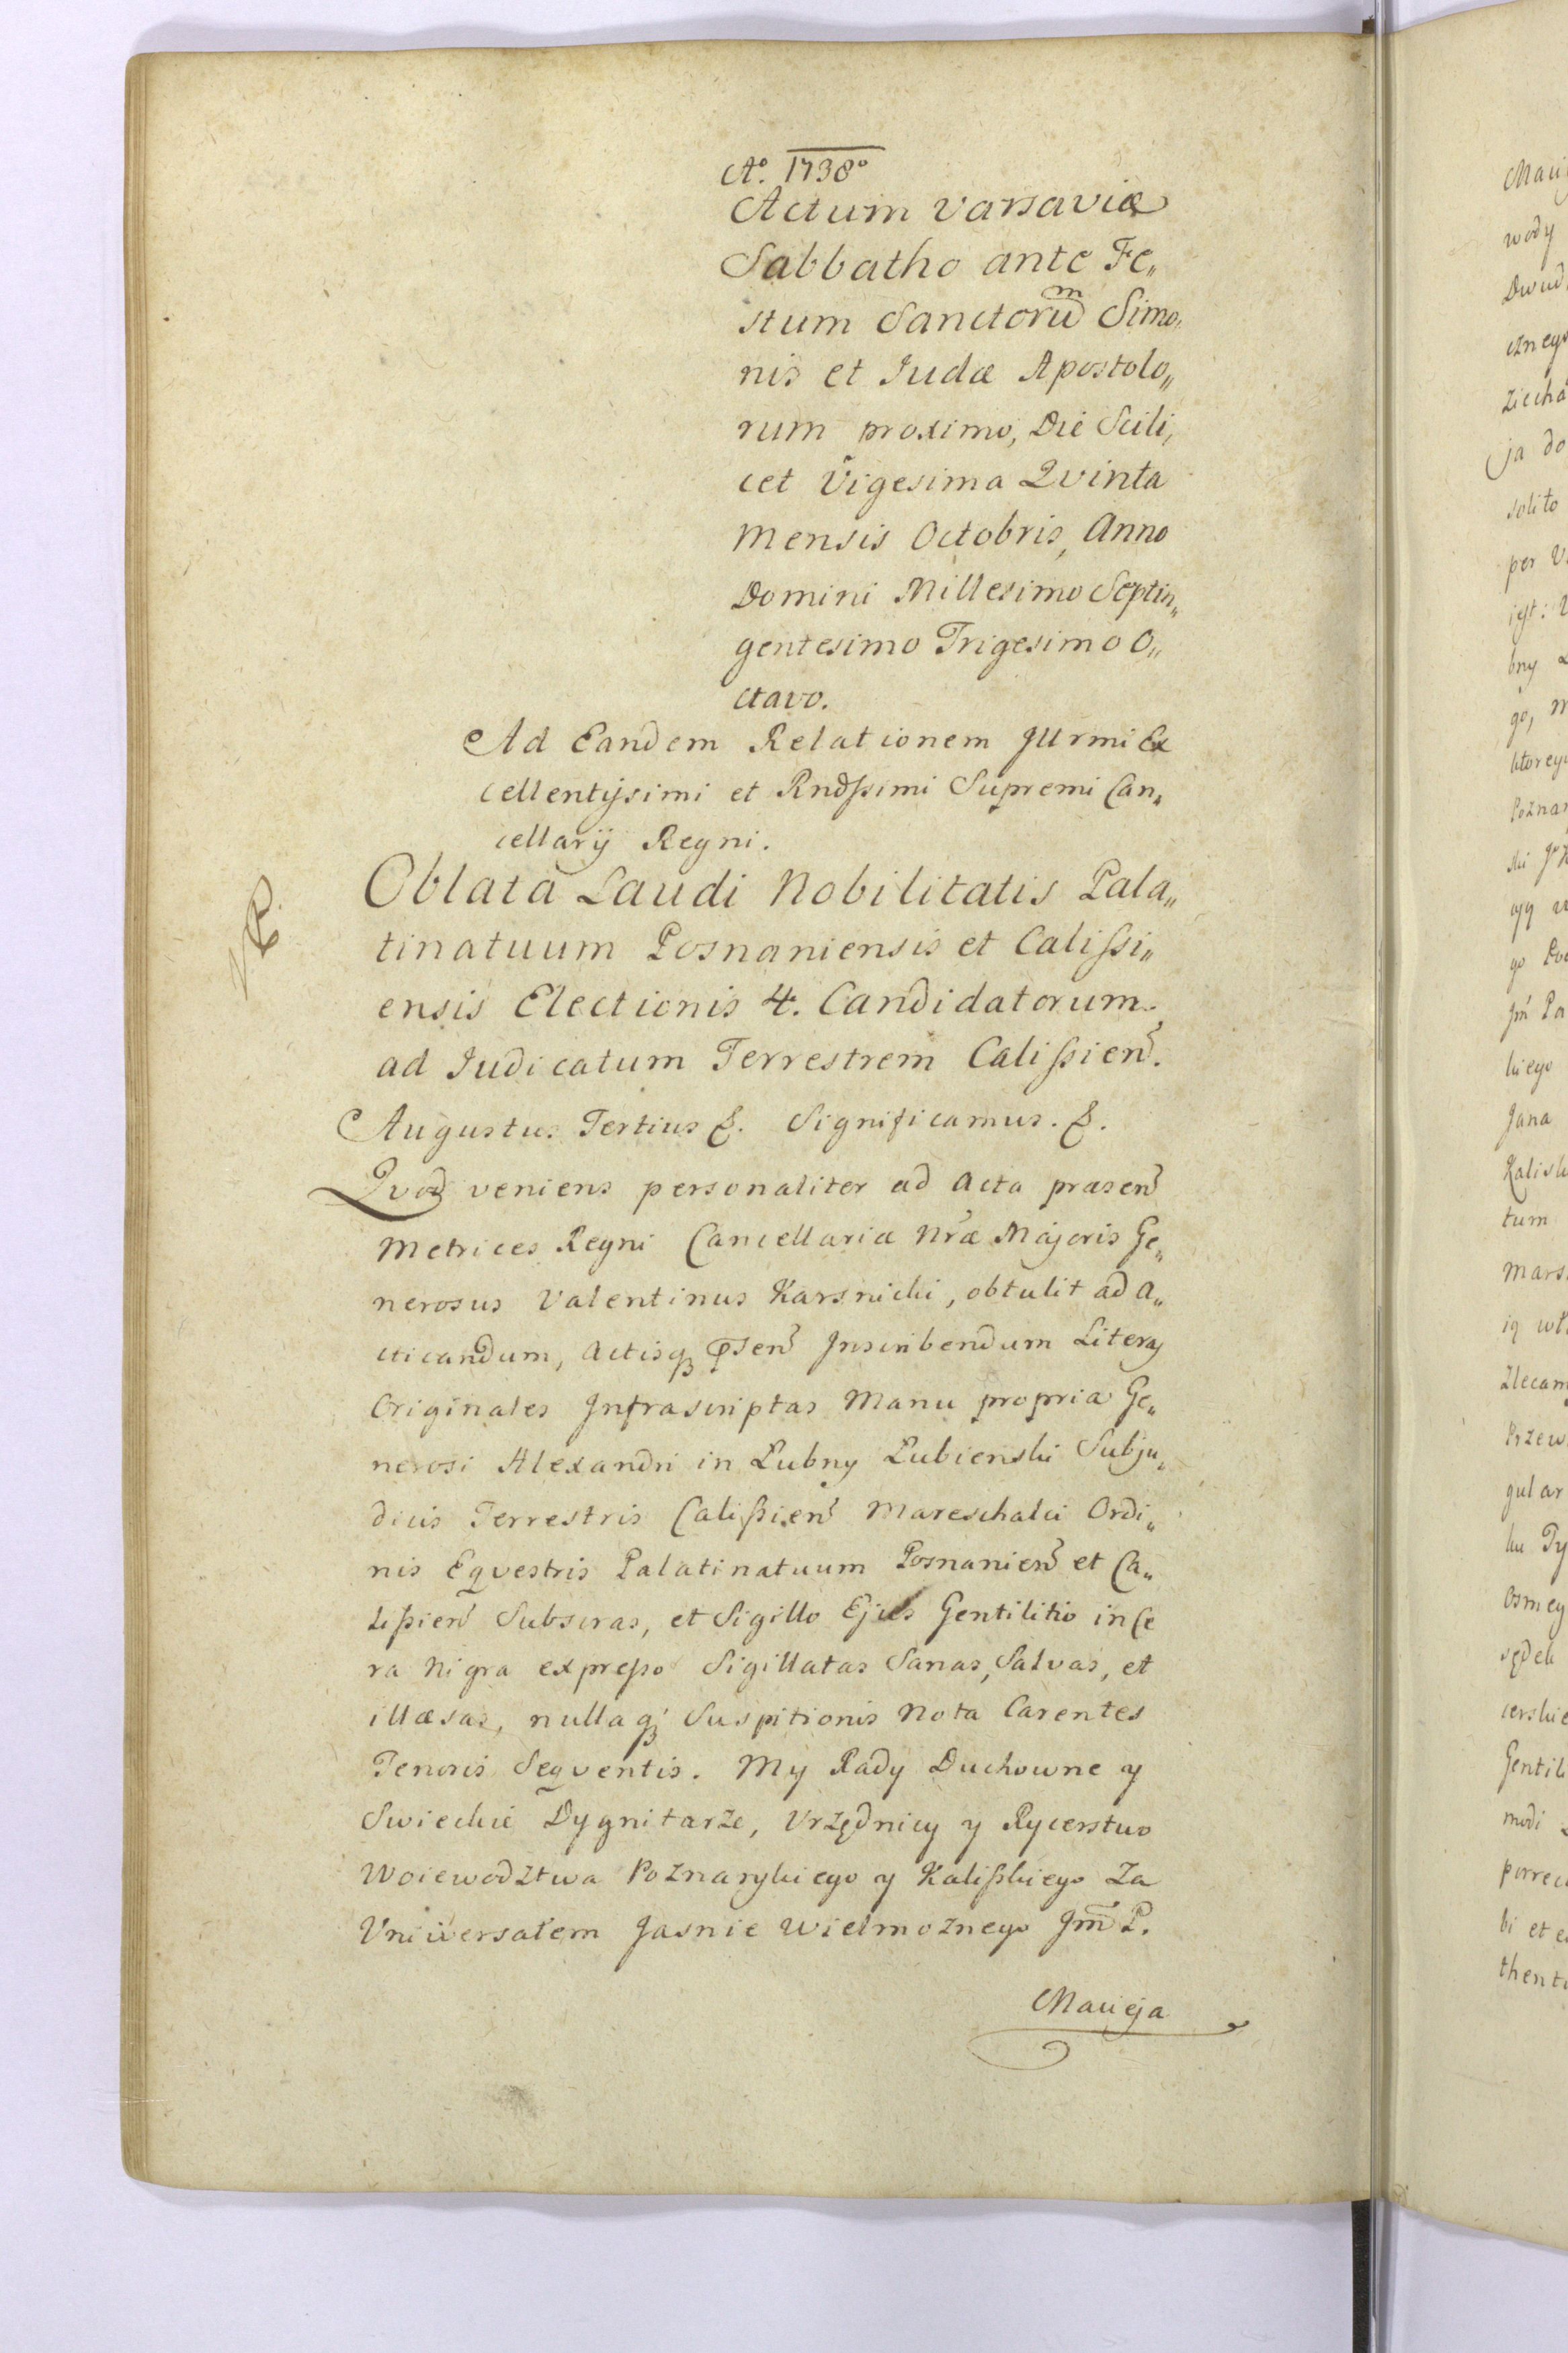 Aº. 1738º
Actum varsaviæ
Sabbatho ante Fe„
stum Sanctorum̃ Simo„
nis et Iudæ Apostolo„
rum proximo, Die Scili„
cet Vigesima Qvinta
Mensis Octobris, Anno
Domini Millesimo Septin„
gentesimo Trigesimo O„
ctavo.
Ad Eandem Relationem Jllrmi Ex
cellentysimi et Rndſsimi Supremi Can„
cellarij Regni.
Oblata Laudi Nobilitatis Pala„
tinatuum Posnaniensis et Calißi„
ensis Electionis 4. Candidatorum
ad Iudicatum Terrestrem Calißien̄.
VR.
Augustus Tertius &. Significamus. &.
Qvod veniens personaliter ad Acta præsen̄
Metrices Regni Cancellariæ Nr̃æ Majoris Ge„
nerosus Valentinus Karsnicki, obtulit ad a„
cticandum, Actisqꝫ p̄sen̄ Jnscribendum Literas
Originales Jnfrascriptas Manu propria Ge„
nerosi Alexandri in Lubny Lubienski Subju„
dicis Terrestris Calißien̄ Mareschalci Ordi„
nis Eqvestris Palatinatuum Posnanien̄ et Ca„
lißien̄ Subscras, et Sigillo Ejus Gentilitio in Ce
ra Nigra expreßo Sigillatas Sanas, Salvas, et
illæsas, nullaqꝫ Suspitionis Nota Carentes
Tenoris Seqventis. My Rady Duchowne y
Swieckie Dygnitarze, Vrzędnicy y Rycerstwo
Woiewodztwa Poznanskiego y Kalißkiego Za
Vniwersałem Jasnie Wielmoznego Jm̃ P.
Macieja